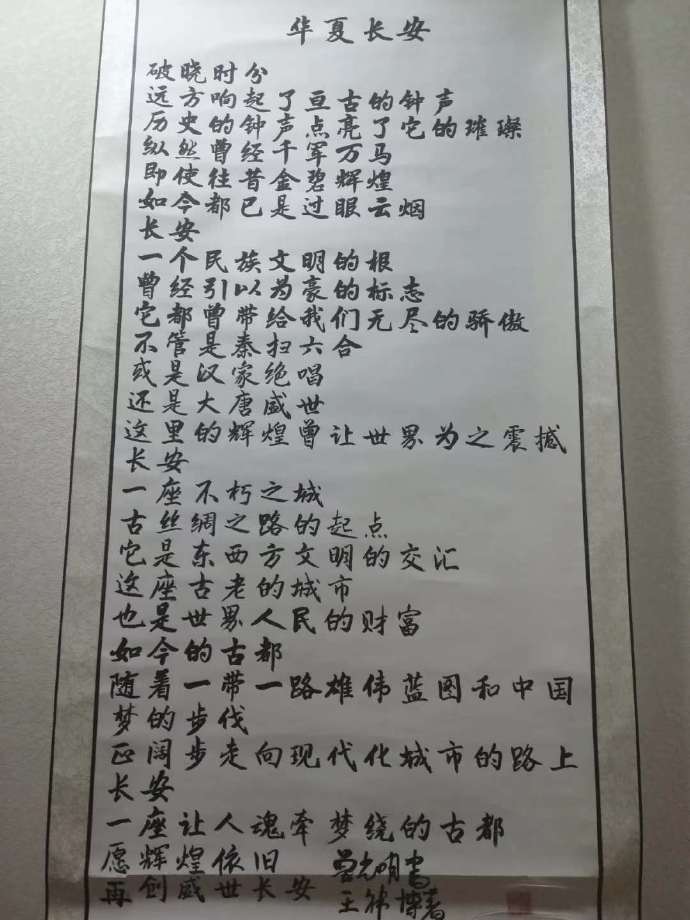 华夏长安
破晓时分
远方响起了亘古的钟声
历史的钟声点亮了它的璀璨
纵然曾经千军万马
即使往昔金碧辉煌
如今都已是过眼云烟
长安
一个民族文明的根
曾经引以为豪的标志
它都曾带给我们无尽的骄傲
不管是秦扫六合
或是汉家绝唱
还是大唐盛世
这里的辉煌曾让世界为之震撼
长安
一座不朽之城
古丝绸之路的起点
它是东西方文明的交汇
这座古老的城市
也是世界人民的财富
如今的古都
随着一带一路雄伟蓝图和中国
梦的步伐
正阔步走向现代化城市的路上
长安
一座让人魂牵梦绕的古都
愿辉煌依旧 曾光明书
再创盛世长安 王祎博著